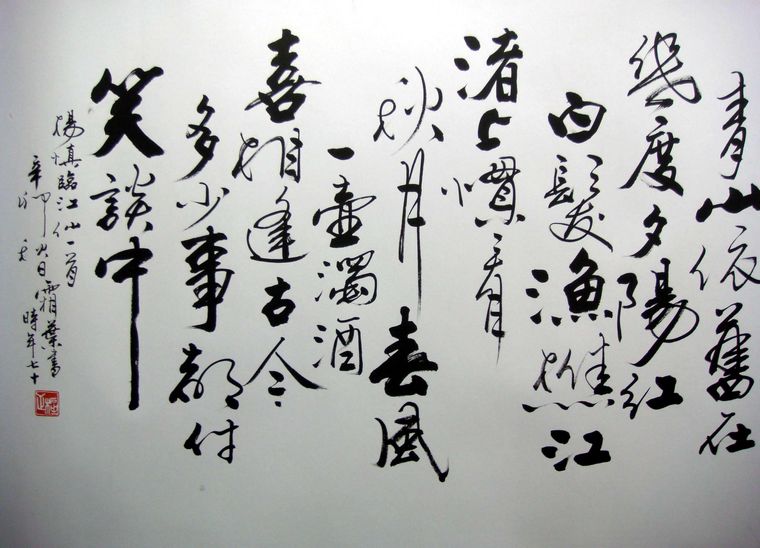 青山依舊在
幾度夕陽紅
白髮漁樵江
渚上慣看
秋月春風
一壺濁酒
喜相逢古今
多少事都付
笑談中
楊慎臨江仙一首
辛卯
霜葉書
時年七十